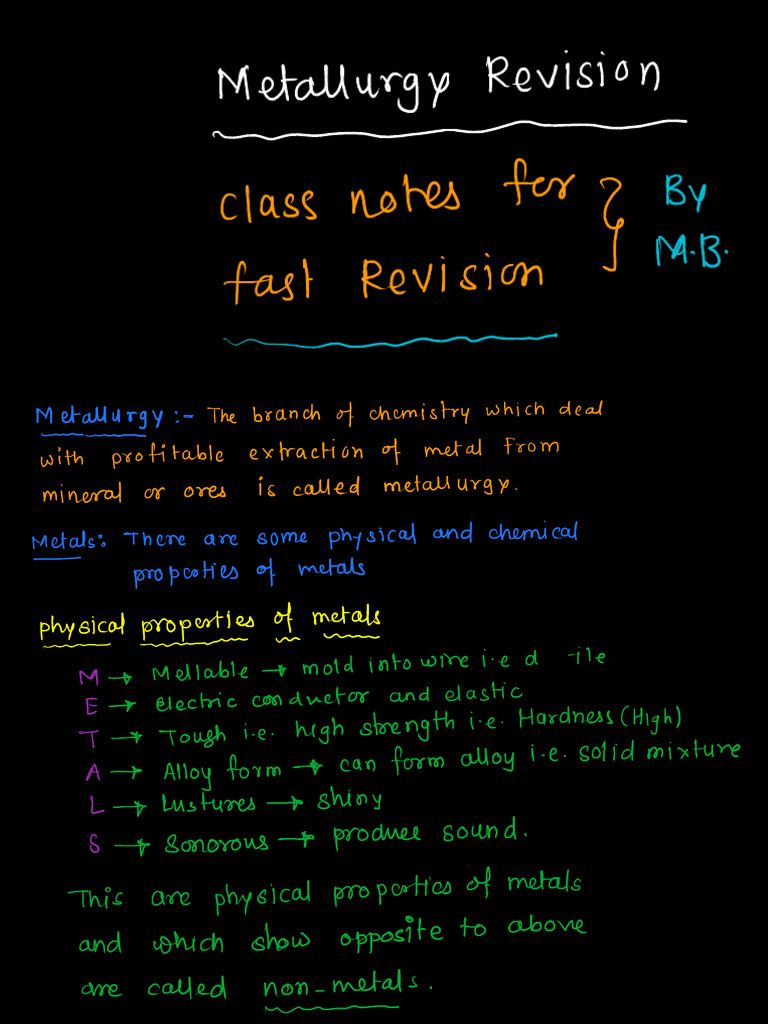 Metallurgy Revision
class notes for } By
fast Revision M.B.
Metallurgy :- The branch of chemistry which deal
with profitable extraction of metal from
mineral or ores is called metallurgy.
Metals: There are some physical and chemical
properties of metals
physical properties of metals
M → Mellable → mold into wire i.e d -ile
E → Electric conductor and elastic
T → Tough i.e. high strength i.e. Hardness (High)
A → Alloy form → can form alloy i.e. solid mixture
L → Lustures → shiny
S → Sonorous → produce sound.
This are physical properties of metals
and which show opposite to above
are called non-metals.